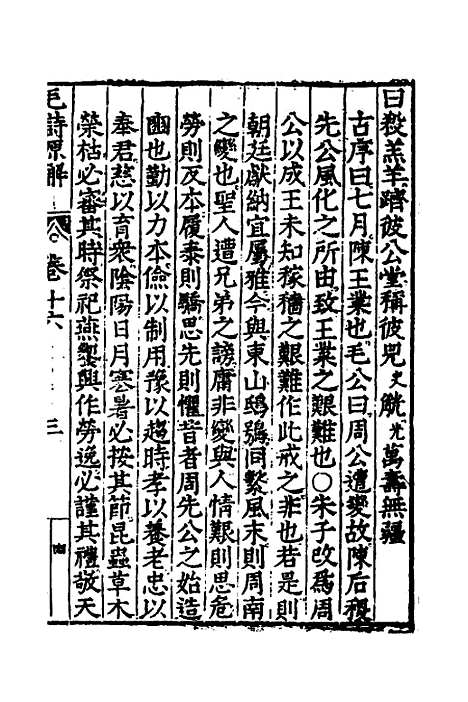 曰殺羔羊躋彼公堂稱彼兕觥萬壽無疆
古序曰七月陳王業也毛公曰周公遭變故陳后稷
先公風化之所由致王業之艱難也○朱子改為周
公以成王未知稼穡之艱難作此戒之非也若是則
朝廷獻納宜屬雅今與東山鴟鴞同繫風末則周南
之變也聖人遭兄弟之謗庸非變與人情艱則思危
勞則反本履泰則驕思先則懼昔者周先公之始造
豳也勤以力本儉以制用豫以趨時孝以養老忠以
奉君慈以育衆陰陽日月寒暑必按其節昆蟲草木
榮枯必審其時祭祀燕饗興作勞逸必謹其禮敬天
毛詩原解 卷十六 三